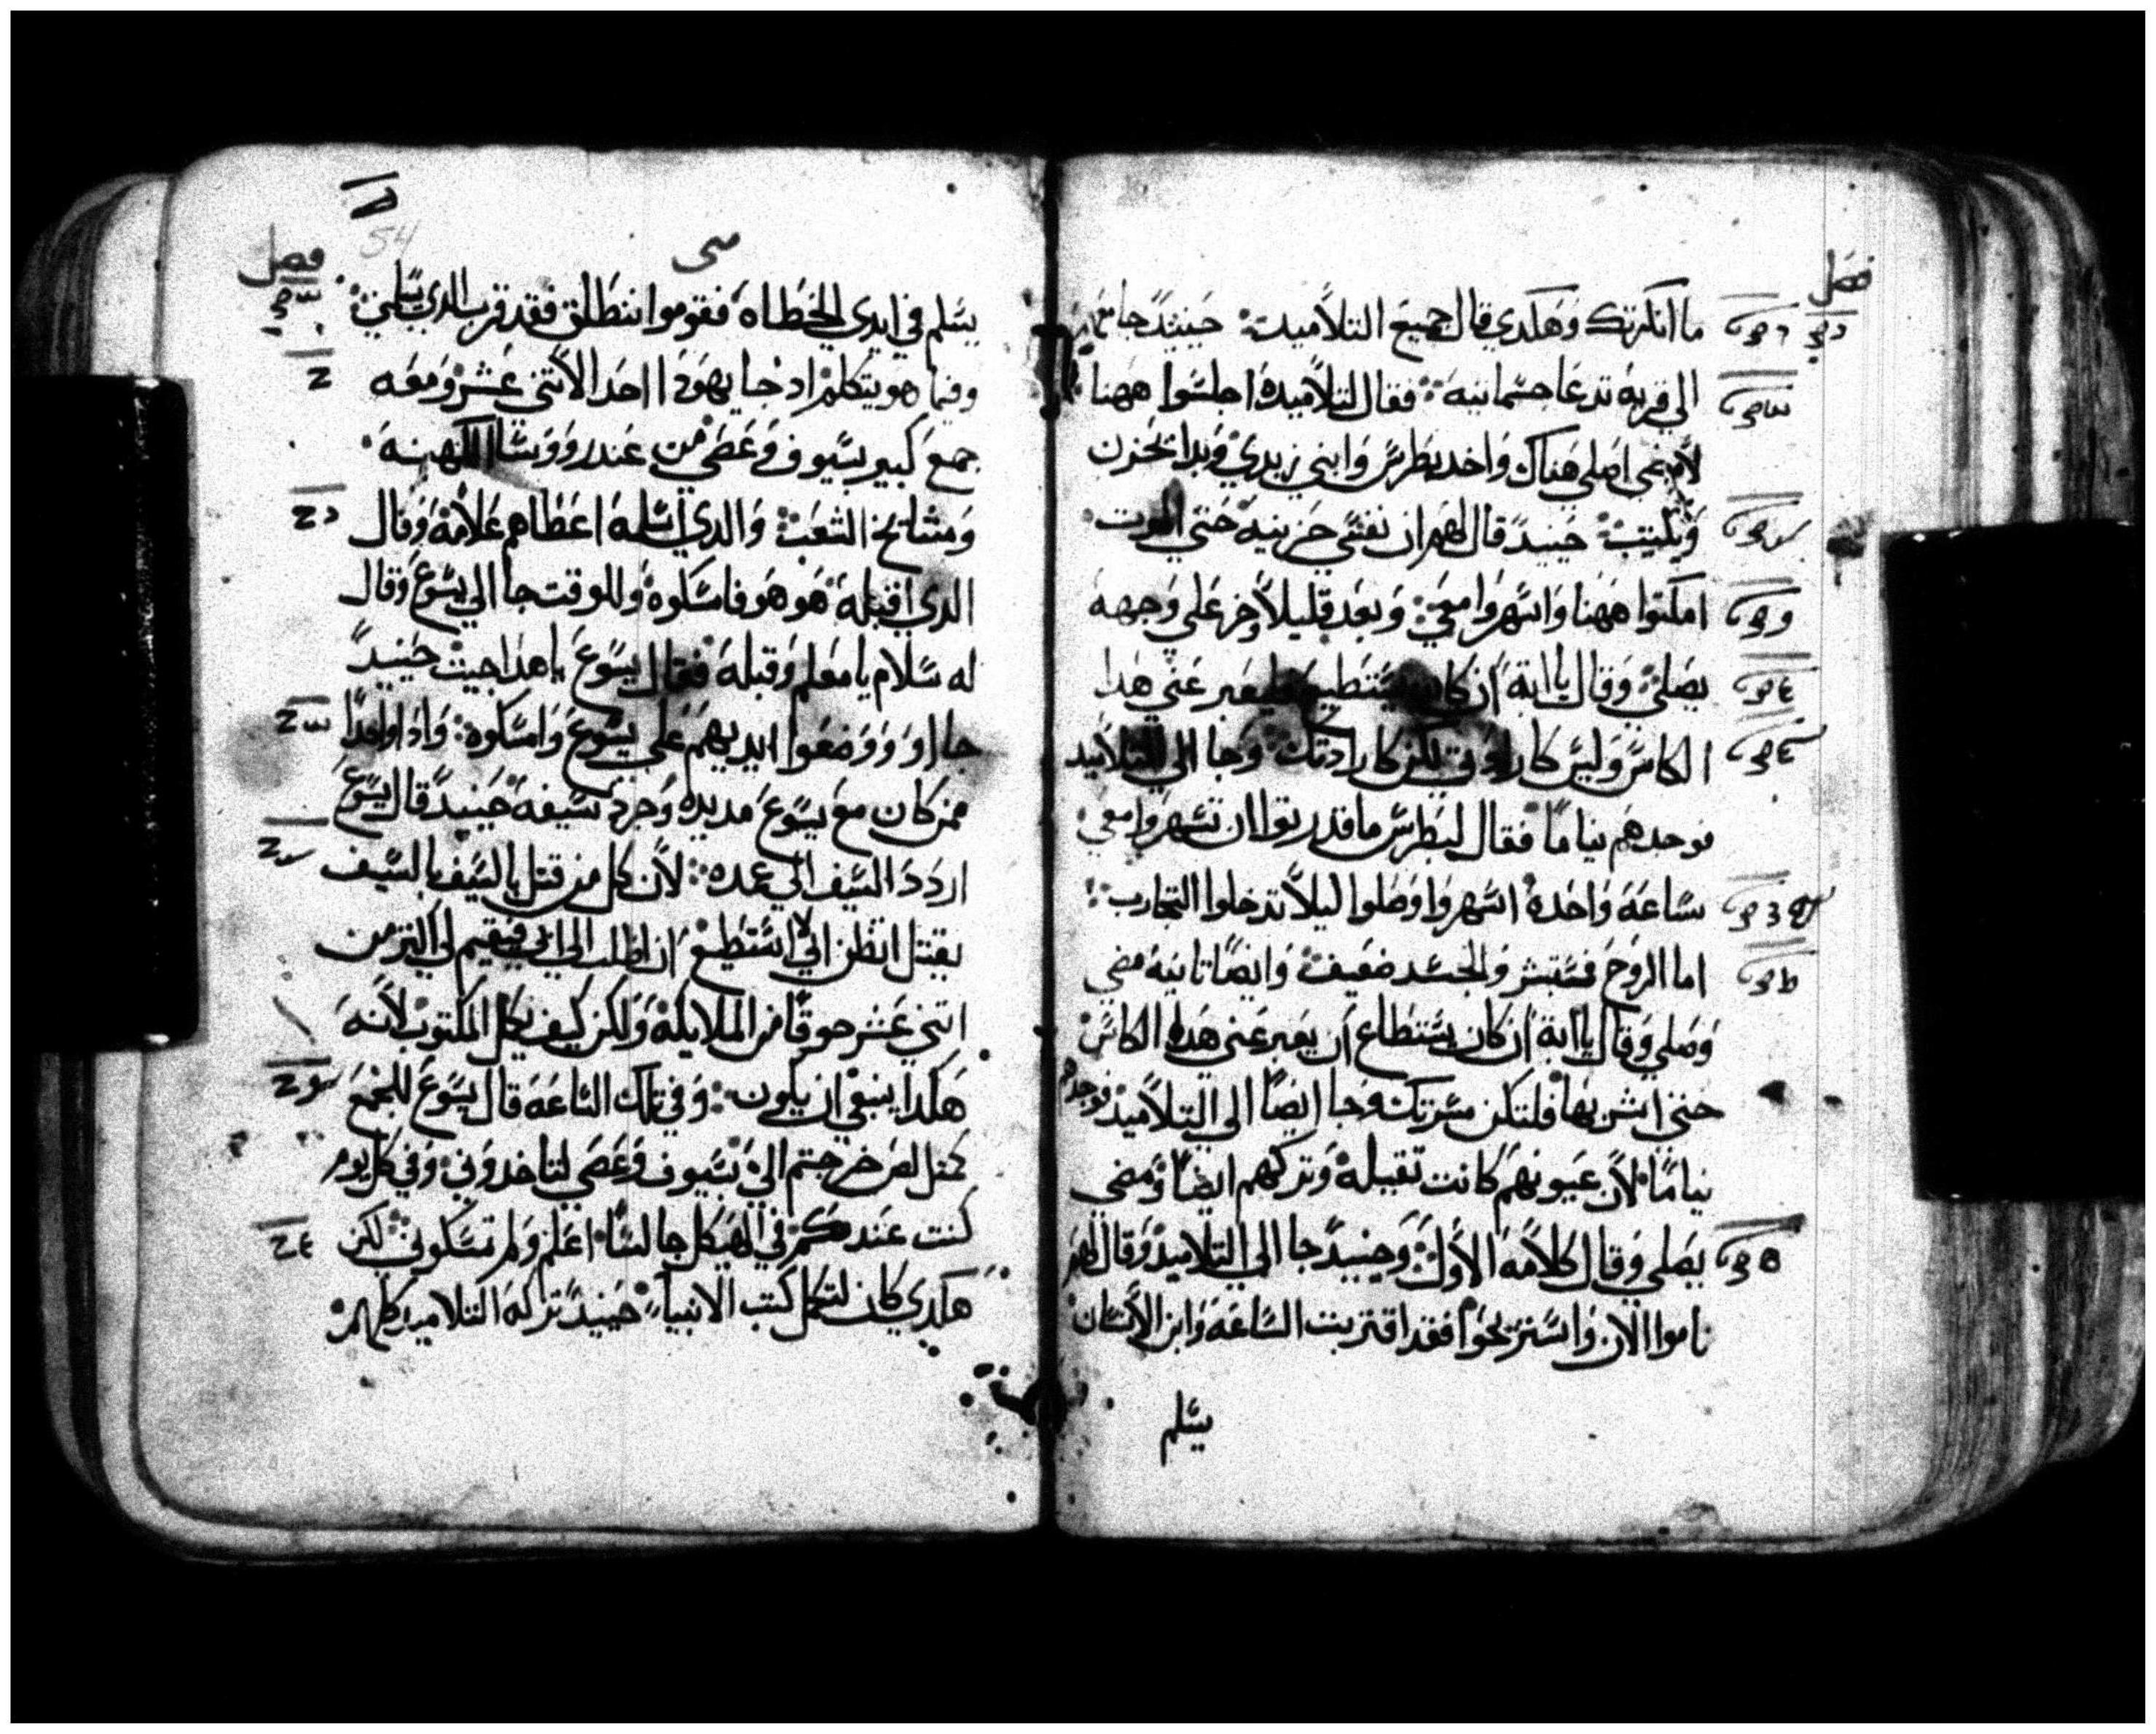 فصل
ما انكرتك وهكدي قال جميع التلاميد حينيد جا معهم
الي قرية تدعا جسمانيه فقال لتلاميده اجلسوا ههنا
لامضي اصلي هناك واخد بطرس وابني زبدي وبدا يحزن
ويكتيب حينيد قال لهم ان نفسي حزينه حتي الموت
امكتوا ههنا واسهروا معي وبعد قليلا وخر علي وجهه
يصلي وقال ياابة ان كان يستطيع فليعبر عني هدا
الكاس وليس كارادتي لكن كارادتك وجا الي التلاميد
فوجدهم نياما فقال لبطرس ما قدرتوا ان تسهروا معي
ساعة واحدة اسهروا وصلوا ليلا تدخلوا التجارب
اما الروح فستبشر والجسد ضعيف وايضا تانية مضي
وصلي وقال ياابة ان كان يستطاع ان يعبر عني هده الكاس
حتي اشربها فلتكن مسرتك وجا ايضا الي التلاميد فوجدهم
نياما لان عيونهم كانت تقيله وتركهم ايضا ومضي
يصلي وقال كلامه الاول وحينيد جا الي التلاميد وقال لهم
ناموا الان واستريحوا فقد اقتربت الساعة وابن الانسان
يسلم
54
متى
فصل
يسلم في ايدي الخطاه فقوموا ننطلق فقد قرب الدي يسلمني
وفيما هو يتكلم اد جا يهودا احد الاتني عشر ومعه
جمع كبير بسيوف وعصي من عند رووسا الكهنه
ومشايخ الشعب والدي اسلمه اعطاهم علامة وقال
الدي اقبله هو هو فامسكوه وللوقت جا الي يسوع وقال
له سلام يا معلم وقبله فقال يسوع ياهدا جيت حينيد
جااو ووضعوا ايديهم علي يسوع وامسكوه وادا واحدا
ممن كان مع يسوع مد يده وجرد سيفه حينيد قال يسوع
اردد السيف الي غمده لان كل من قتل بالسيف بالسيف
يقتل اتظن اني لا استطيع ان اطلب الي ابي فيقيم لي اكتر من
اتني عشر جوقا من الملايكة ولكن كيف يكمل المكتوب لانه
هكدا ينبغي ان يكون وفي تلك الساعة قال يسوع للجمع
كمتل لص خرجتم الي بسيوف وعصي لتاخدوني وفي كل يوم
كنت عندكم في الهيكل جالسا اعلم ولم تمسكوني لكن
هكدي كان لتكمل كتب الانبيا حينيد تركه التلاميد كلهم